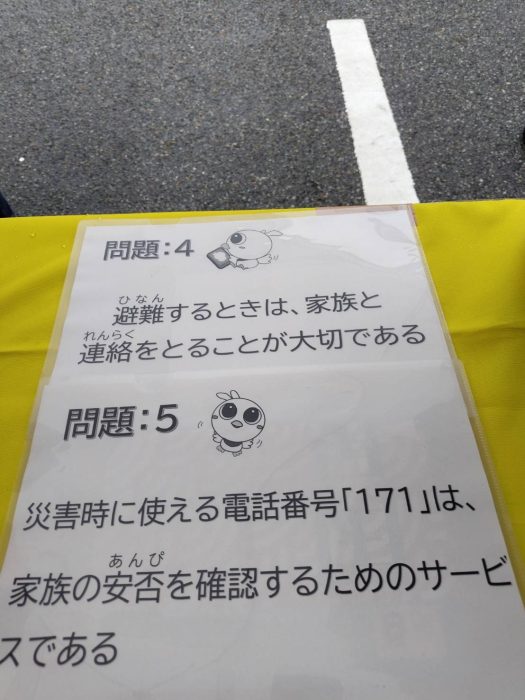 問題:4
ひなん
避難するときは、家族と
れんらく
連絡をとることが大切である
問題:5
災害時に使える電話番号「171」は、
あんぴ
家族の安否を確認するためのサービ
スである